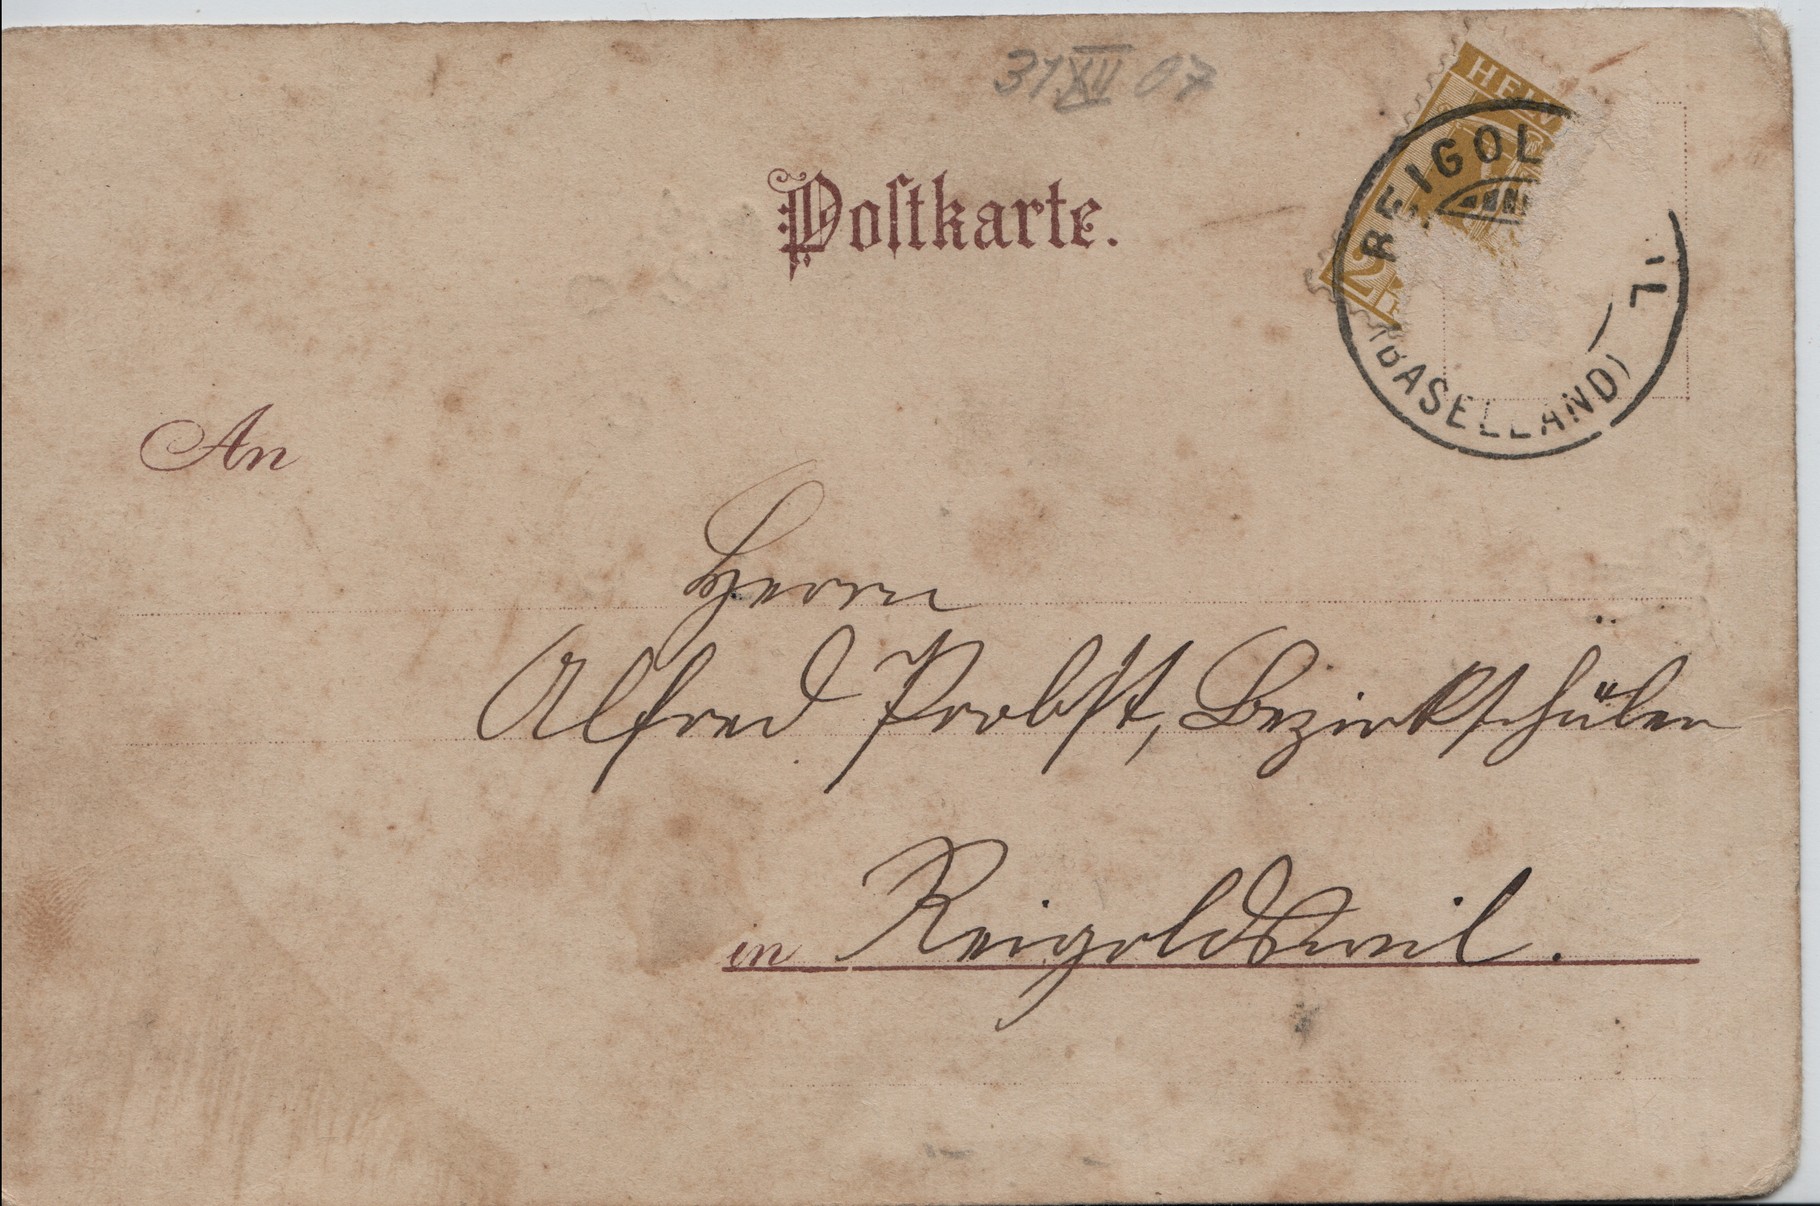 31 XII 07
HELV
REIGOL IL
2
(BASELLAND)
Postkarte.
An
Herrn
Alfred Probst, Bezirksschüler
in Reigoldswil.